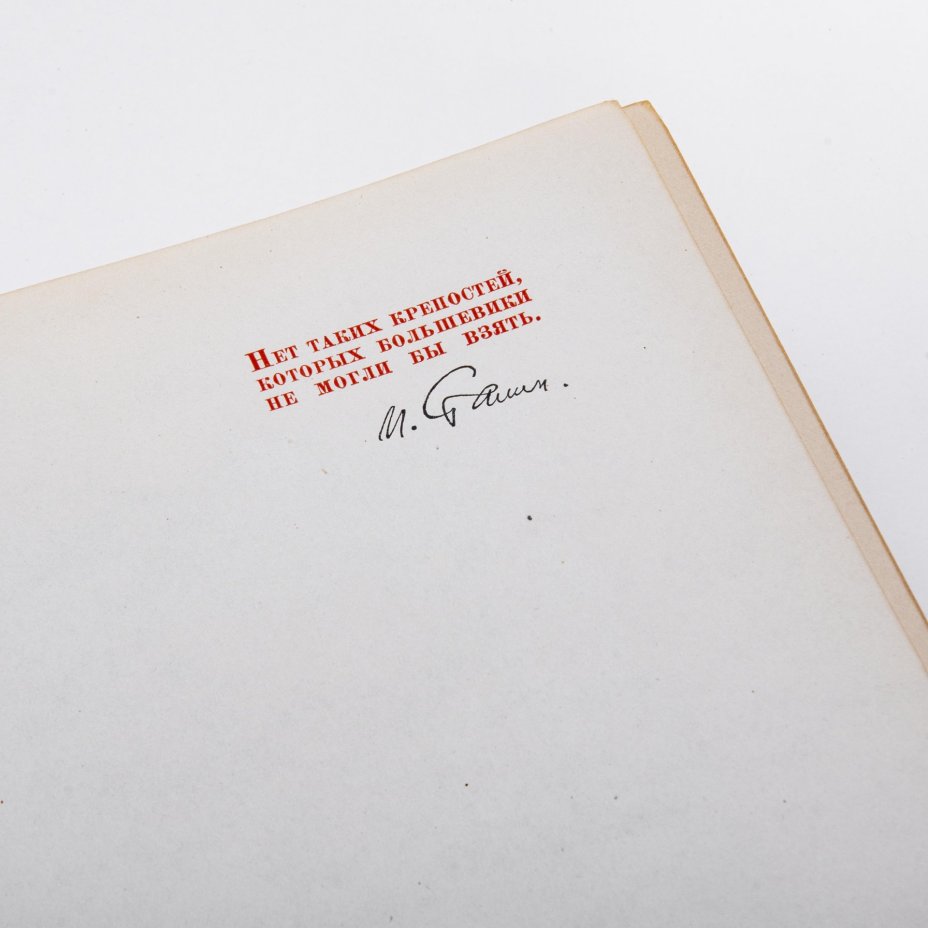 Нет таких крепостей,
которых большевики
не могли бы взять.
И. Сталин.